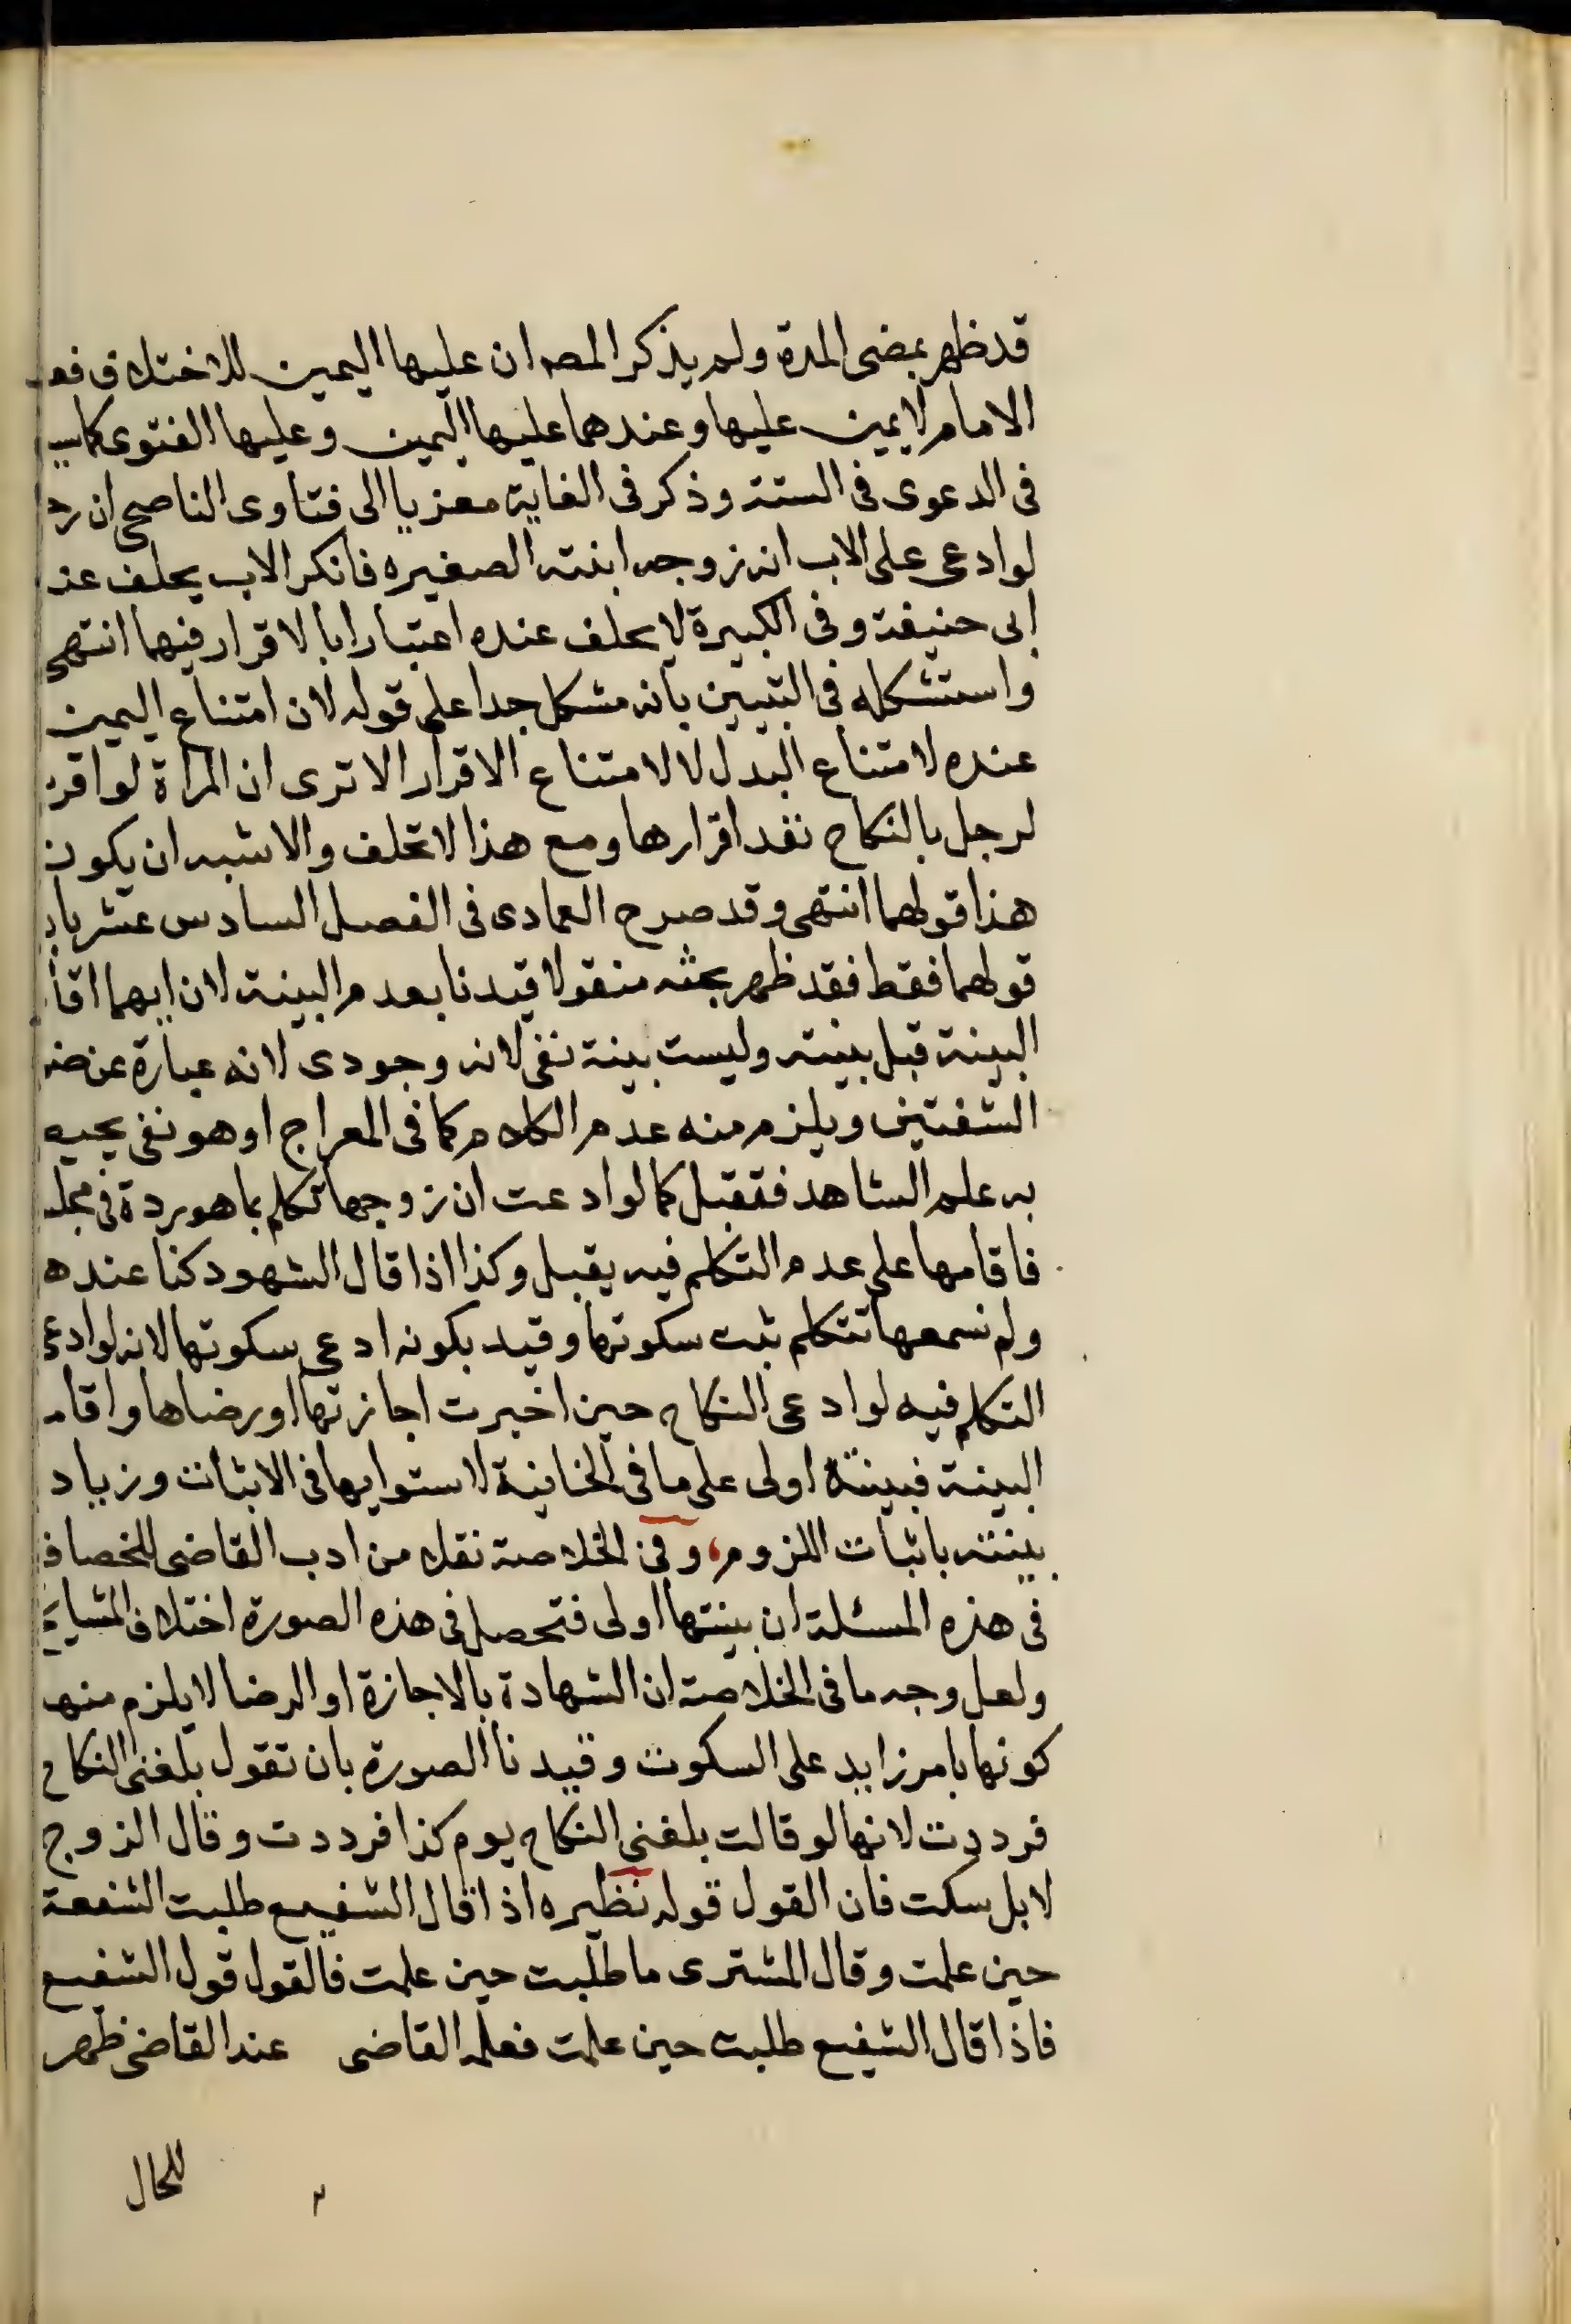 قد ظهر بمضى المدة ولم يذكر المصه ان عليها اليمين للاختلاف فعـ
الامام لا يمين عليها وعندهما عليها اليمين وعليها الفتوى كما سيـ
فى الدعوى فى الستة وذكر فى الغاية معزيا الى فتاوى الناصحى ان رجـ
لو ادعى على الاب انه زوجه ابنته الصغيره فانكر الاب يحلف عند
ابى حنيفة وفى الكبيرة لا يحلف عنده اعتبارا بالاقرار فيهما انتهى
واستشكله فى التبيين بانه مشكل جدا على قوله لان امتناع اليمين
عنده لامتناع البدل لا لامتناع الاقرار الا ترى ان المراة لو اقرت
لرجل بالنكاح نفد اقرارها ومع هذا لا تحلف والاشبه ان يكون
هذا قولهما انتهى وقد صرح العمادى فى الفصل السادس عشر بانـ
قولهما فقط فقد ظهر بحثه منقولا قيدنا بعدم البينة لان ايهما اقا
البينة قبل بينته وليست بينة نفى لانه وجودى لانه عبارة عن ضـ
الشفتين ويلزم منه عدم الكلام كما فى المعراج او هو نفى يحيـ
به علم الشاهد فقبل كما لو ادعت ان زوجها تكلم بما هو ردة فى مجلـ
فاقامها على عدم التكلم فيه يقبل وكذا اذا قال الشهود كنا عندها
ولم نسمعها تتكلم ثبت سكوتها وقيد بكونه ادعى سكوتها لانه لو ادعى
التكلم فيه لو ادعى النكاح حين اخبرت اجازتها او رضاها واقامـ
البينة فبينته اولى على ما فى الخانية لاستوايهما فى الاثبات وزياد
بينته باثبات اللزوم، وفى الخلاصة نقلا من ادب القاضى للخصاف
فى هذه المسئلة ان بينتها اولى فتحصل فى هذه الصورة اختلاف المشايخ
ولعل وجه ما فى الخلاصة ان الشهادة بالاجازة او الرضا لا يلزم منها
كونها بامر زايد على السكوت وقيدنا الصورة بان تقول بلغنى النكاح
فرددت لانها لو قالت بلغنى النكاح يوم كذا فرددت وقال الزوج
لا بل سكت فان القول قوله نظيره اذا قال الشفيع طلبت الشفعة
حين علمت وقال المشترى ما طلبت حين علمت فالقول قول الشفيع
فاذا قال الشفيع طلبت حين علمت فعلمه القاضى عند القاضى ظهر
للحال